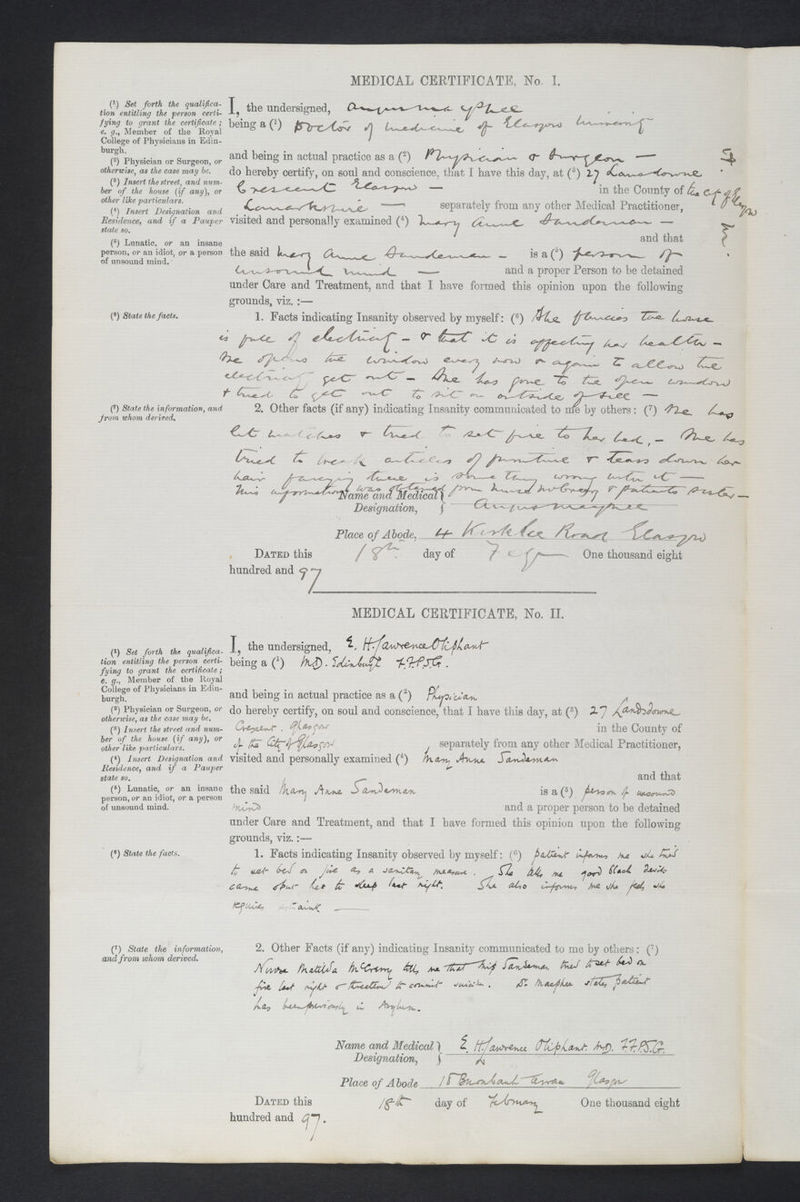 MEDICAL CERTIFICATE, No. I.
(¹) Set forth the qualifica-
tion entitling the person certi-
fying to grant the certificate;
e. g., Member of the Royal
College of Physicians in Edin-
burgh.
(²) Physician or Surgeon, or
otherwise, as the case may be.
(³) Insert the street, and num-
ber of the house (if any), or
other like particulars.
(⁴) Insert Designation and
Residence, and if a Pauper
state so.
(⁵) Lunatic, or an insane
person, or an idiot, or a person
of unsound mind.
I, the undersigned, Angus Macphee
being a (¹) Doctor of Medicine of Glasgow University
and being in actual practice as a (²) Physician & Surgeon —
do hereby certify, on soul and conscience, that I have this day, at (³) 27 Lansdowne
Crescent Glasgow — in the County of the City of Glasgow
Lanarkshire — separately from any other Medical Practitioner,
visited and personally examined (⁴) Mary Anne Sandeman —
and that
the said Mary Anne Sandeman — is a (⁵) person of
unsound mind — and a proper Person to be detained
under Care and Treatment, and that I have formed this opinion upon the following
grounds, viz. :—
(⁶) State the facts.
1. Facts indicating Insanity observed by myself: (⁶) She fancies the house
is full of electricity – & that it is affecting her health –
She opens the window every now & again to allow the
electricity get out – She has gone to the open window
& tried to get out to sit on outside of sill —
(⁷) State the information, and
from whom derived.
2. Other facts (if any) indicating Insanity communicated to me by others: (⁷) She has
lit matches & tried to set fire to her bed, – She has
tried to break articles of furniture & tears down her
hair fancying there is something wrong with it —
This information was obtained from Nurse McCreary & patients sister —
Name and Medical Designation, Angus Macphee
Place of Abode, 4 Kirklee Road Glasgow
DATED this 18th day of Feby One thousand eight
hundred and 97
MEDICAL CERTIFICATE, No. II.
(¹) Set forth the qualifica-
tion entitling the person certi-
fying to grant the certificate;
e. g., Member of the Royal
College of Physicians in Edin-
burgh.
(²) Physician or Surgeon, or
otherwise, as the case may be.
(³) Insert the street and num-
ber of the house (if any), or
other like particulars.
(⁴) Insert Designation and
Residence, and if a Pauper
state so.
(⁵) Lunatic, or an insane
person, or an idiot, or a person
of unsound mind.
I, the undersigned, E. H. Lawrence Oliphant
being a (¹) M.D. Edinburgh F.F.P.S.G.
and being in actual practice as a (²) Physician
do hereby certify, on soul and conscience, that I have this day, at (³) 27 Landsdowne
Crescent. Glasgow in the County of
of the City of Glasgow, separately from any other Medical Practitioner,
visited and personally examined (⁴) Mary Anne Sandeman
and that
the said Mary Anne Sandeman is a (⁵) person of unsound
mind and a proper person to be detained
under Care and Treatment, and that I have formed this opinion upon the following
grounds, viz. :—
(⁶) State the facts.
1. Facts indicating Insanity observed by myself: (⁶) patient informs me she tried
to set bed on fire as a sanitary measure. She tells me good black Devils
came about her to sleep last night. She also informs me she feels she
requires restraint —
(⁷) State the information,
and from whom derived.
2. Other Facts (if any) indicating Insanity communicated to me by others: (⁷)
Nurse Matilda McCreary tells me that Miss Sandeman tried to set bed on
fire last night & threatened to commit suicide. Dr Macphee states patient
has been previously in Asylum.
Name and Medical Designation, E. H. Lawrence Oliphant. M.D. F.F.P.S.G.
Place of Abode 15 Terrace Glasgow
DATED this 18th day of February One thousand eight
hundred and 97.